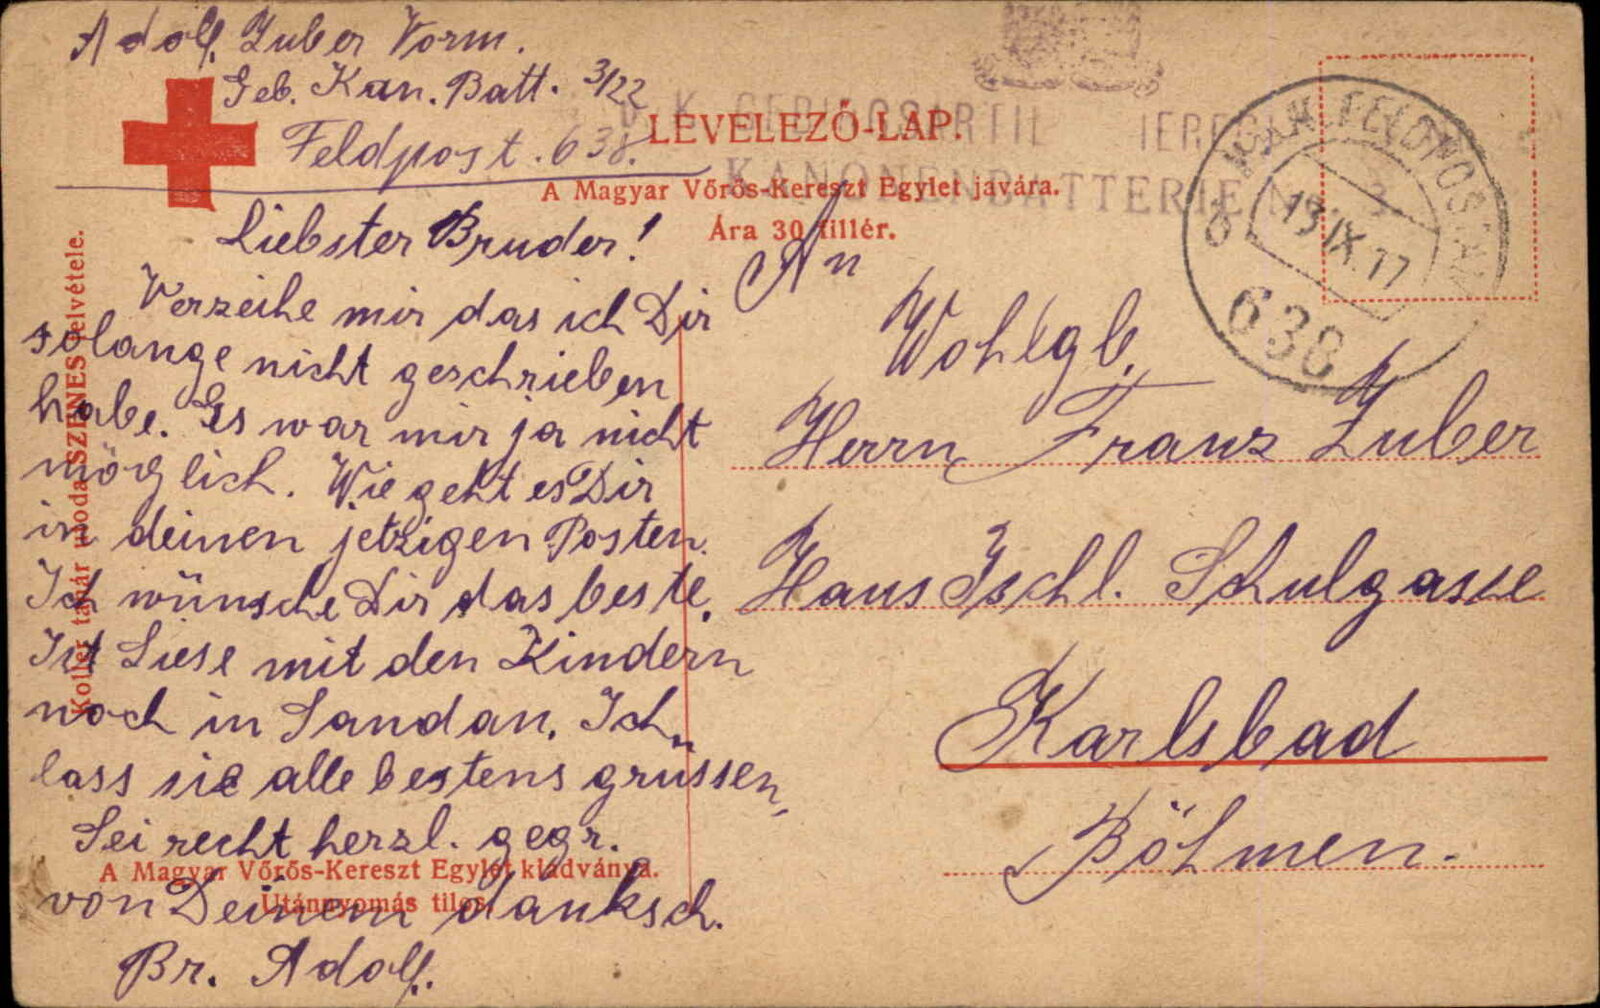 Adolf Zuber Vorm.
Geb. Kan. Batt. 3/22
Feldpost. 638.
LEVELEZŐ-LAP.
A Magyar Vörös-Kereszt Egylet javára.
Ára 30 fillér.
KANONENBATTERIE N
K.u.K. FELDPOSTAMT
13 IX. 17
638
Koller tanár utoda SZENES felvétele.
Liebster Bruder!
Verzeihe mir das ich Dir
solange nicht geschrieben
habe. Es war mir ja nicht
möglich. Wie geht es Dir
in deinen jetzigen Posten.
Ich wünsche Dir das beste.
Ist Liese mit den Kindern
noch in Sandau. Ich
lass sie alle bestens grüssen,
Sei recht herzl. gegr.
von Deinem danksch.
Br. Adolf.
A Magyar Vörös-Kereszt Egylet kiadványa.
Utánnyomás tilos.
An
Wohlgb.
Herrn Franz Zuber
Haus Ischl. Schulgasse
Karlsbad
Böhmen.